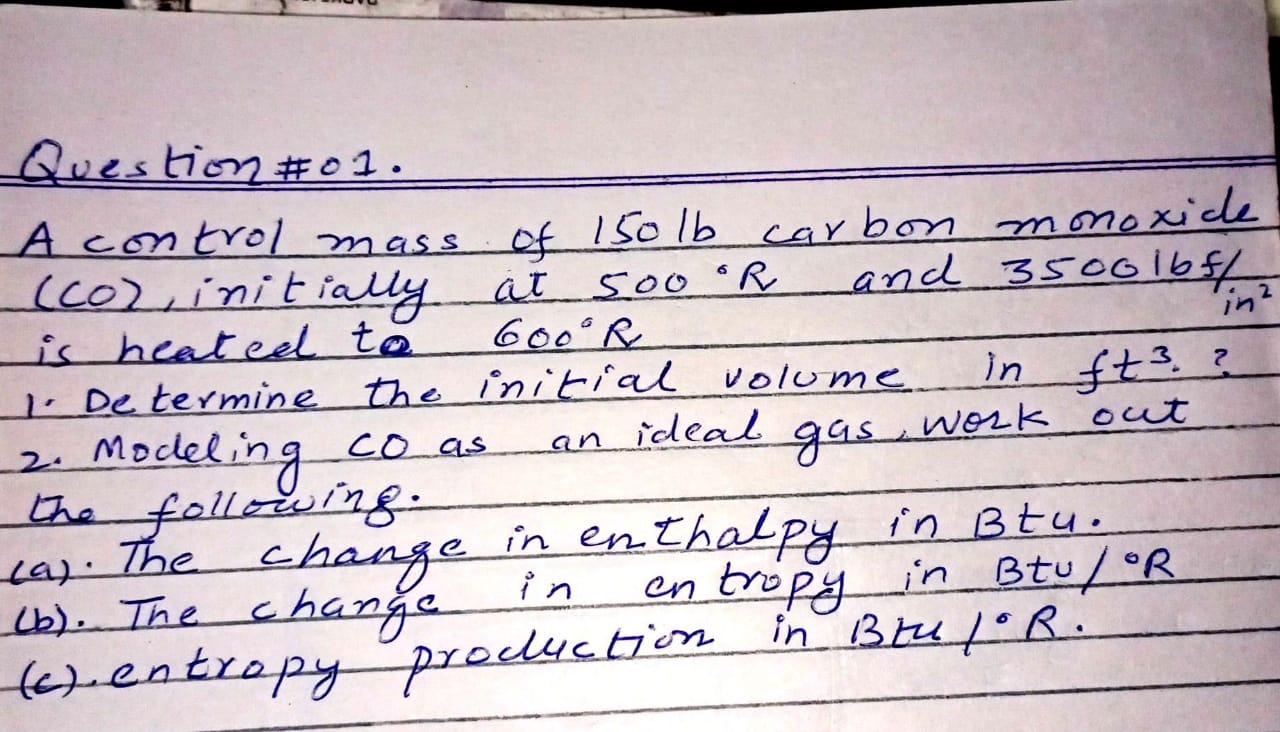 Question #01.
A control mass of 150 lb carbon monoxide
(CO), initially at 500 °R and 3500 lbf/
in²
is heated to 600°R
1. Determine the initial volume in ft³. ?
2. Modeling CO as an ideal gas, work out
the following.
(a). The change in enthalpy in Btu.
(b). The change in entropy in Btu/°R
(c). entropy production in Btu/°R.